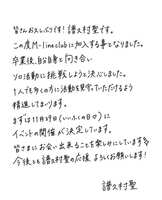 皆さんお久しぶりです！譜久村聖です。
この度M-line clubに加入する事となりました。
卒業後、自分自身と向き合い
ソロ活動に挑戦しようと決心しました。
1人でも多くの方に活動を見守っていただけるよう
精進してまいります。
まずは11月29日（いいふくの日♡）に
イベントの開催が決定しています。
皆さまにお会い出来ることを楽しみにしています
今後とも譜久村聖の応援 よろしくお願いします！
譜久村聖